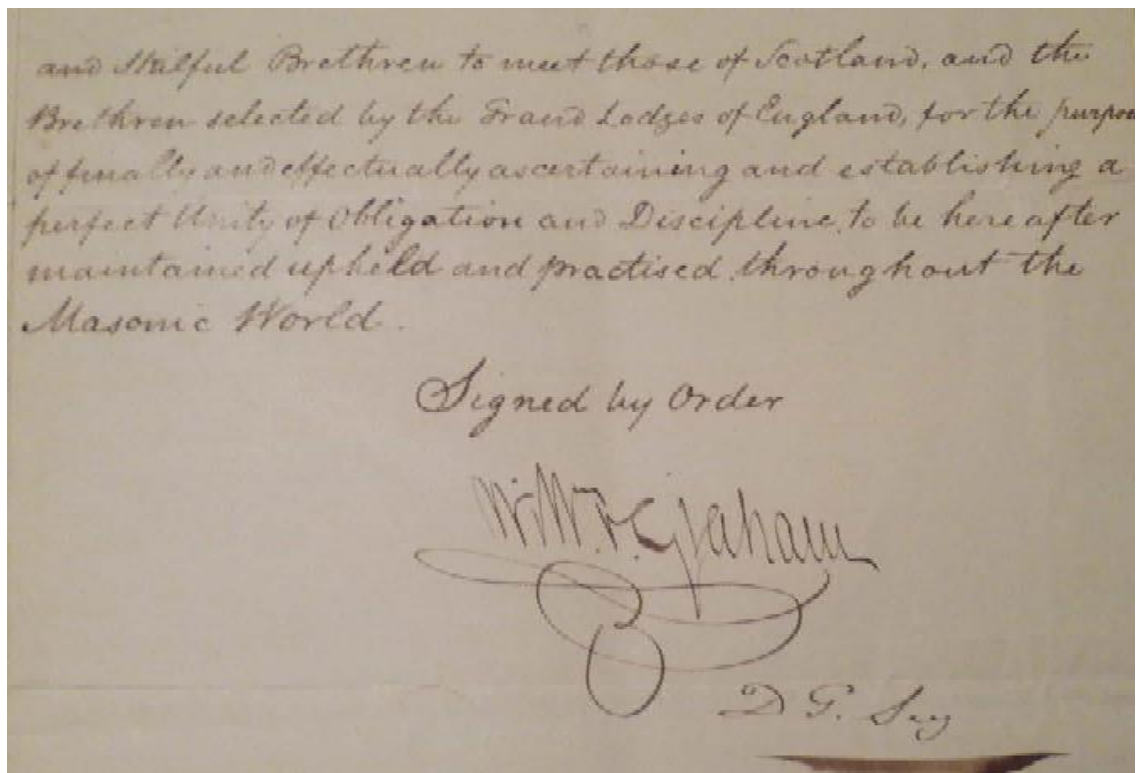 and Skilful Brethren to meet those of Scotland, and the
Brethren selected by the Grand Lodges of England, for the purpose
of finally and effectually ascertaining and establishing a
perfect Unity of Obligation and Discipline, to be here after
maintained upheld and practised throughout the
Masonic World.
Signed by Order
Graham
D G. Secy